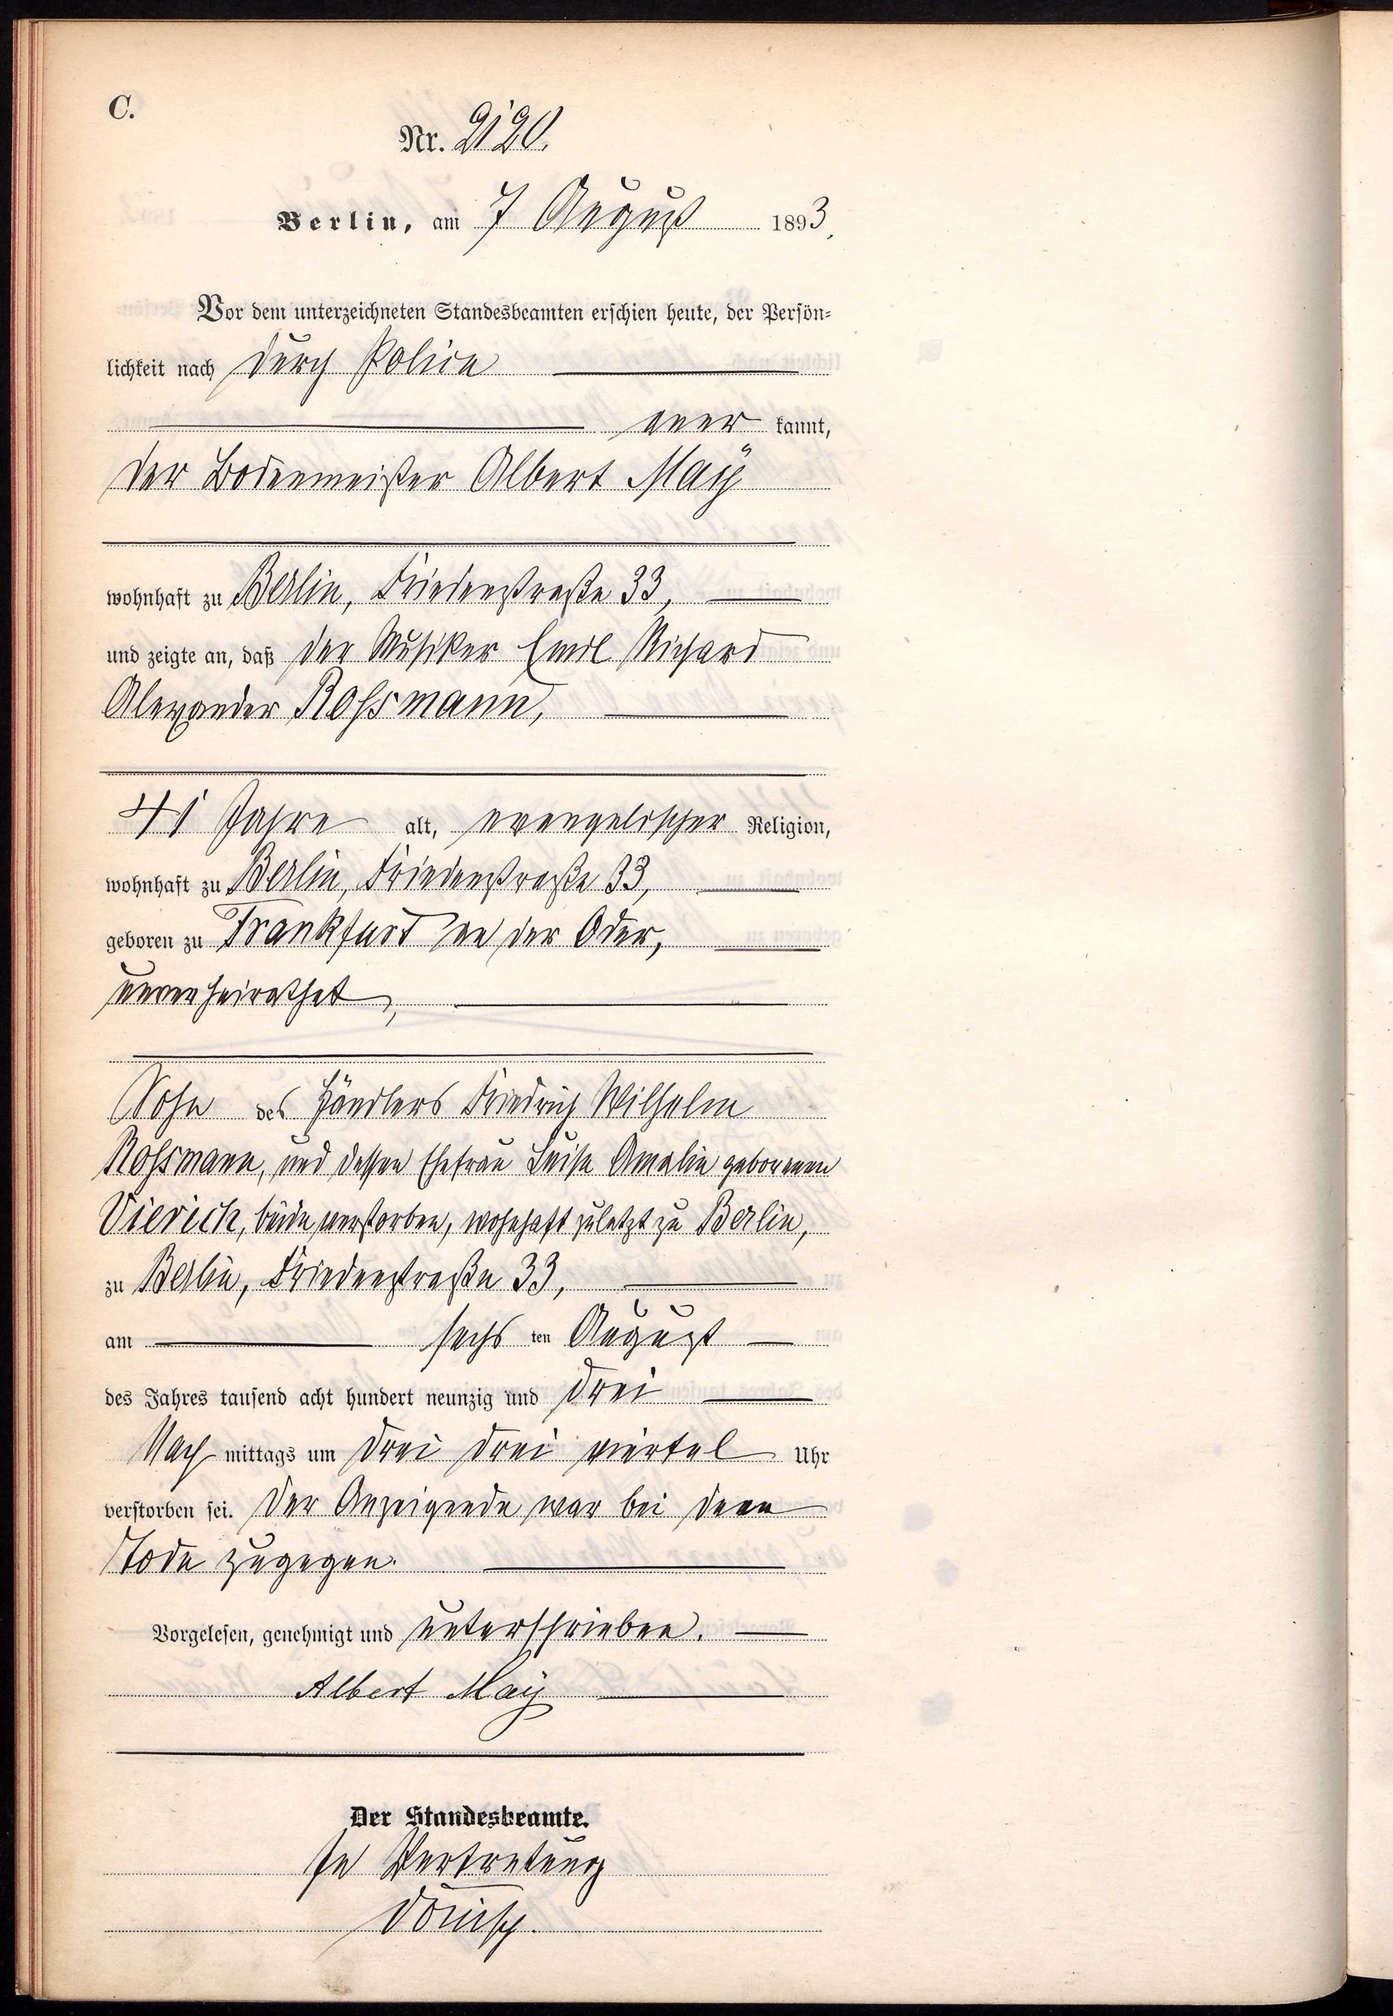 C.
Nr. 2120.
Berlin, am 7 August 1893.
Vor dem unterzeichneten Standesbeamten erschien heute, der Persön-
lichkeit nach durch Police
aner kannt,
der Bodenmeister Albert Maÿ
wohnhaft zu Berlin, Friedenstraße 33,
und zeigte an, daß der Musiker Emil Richard
Alexander Rohsmann,
41 Jahre alt, evangelischer Religion,
wohnhaft zu Berlin, Friedenstraße 33,
geboren zu Frankfurt an der Oder,
unverheirathet,
Sohn des Händlers Friedrich Wilhelm
Rohsmann, und dessen Ehefrau Luise Amalie geborenen
Vierich, beide verstorben, wohnhaft zuletzt zu Berlin,
zu Berlin, Friedenstraße 33,
am sechs ten August
des Jahres tausend acht hundert neunzig und drei
Nach mittags um drei drei viertel Uhr
verstorben sei. Der Anzeigende war bei dem
Tode zugegen.
Vorgelesen, genehmigt und unterschrieben.
Albert Maÿ
Der Standesbeamte.
In Vertretung